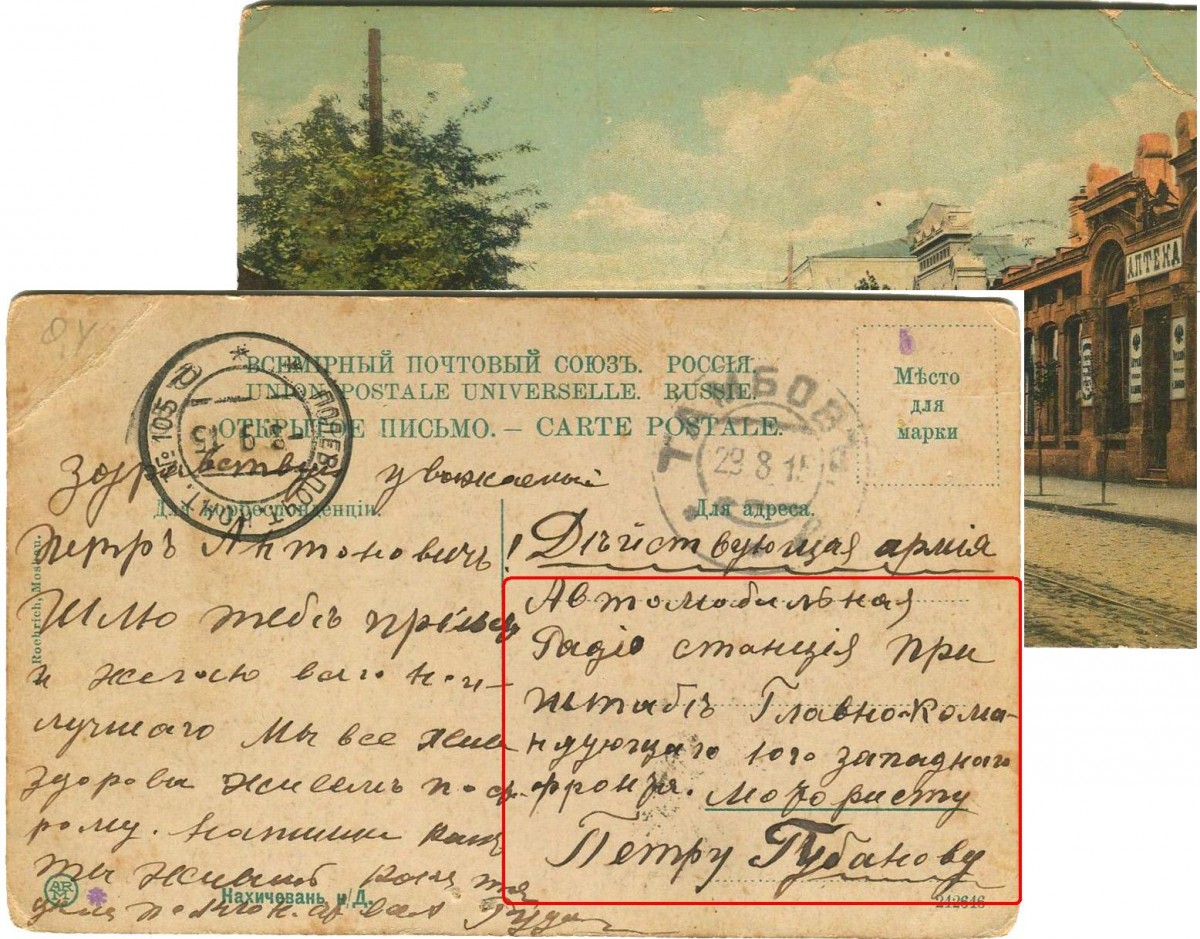 АПТЕКА
ВСЕМІРНЫЙ ПОЧТОВЫЙ СОЮЗЪ. РОССІЯ.
UNION POSTALE UNIVERSELLE. RUSSIE.
ОТКРЫТОЕ ПИСЬМО. – CARTE POSTALE.
Мѣсто
для
марки
ПОЛЕВ. ПОЧТ. КОНТ. № 105
-3 9 15
ТАМБОВЪ
29.8.15
Для корреспонденціи.
Для адреса.
Здравствуй уважаемый
Петръ Антоновичъ!
Шлю тебѣ привѣт
и желаю всего наи-
лучшаго Мы все живы
здорова живемъ по ста-
рому. Напиши как
ты живешъ
Дѣйствующая армія
Автомобильная
Радіо станція при
штабѣ Главно-кома-
ндующаго юго западнаго
фронта. Мотористу
Петру Губанову
Roehrich, Moskau.
Нахичевань н/Д.
212618